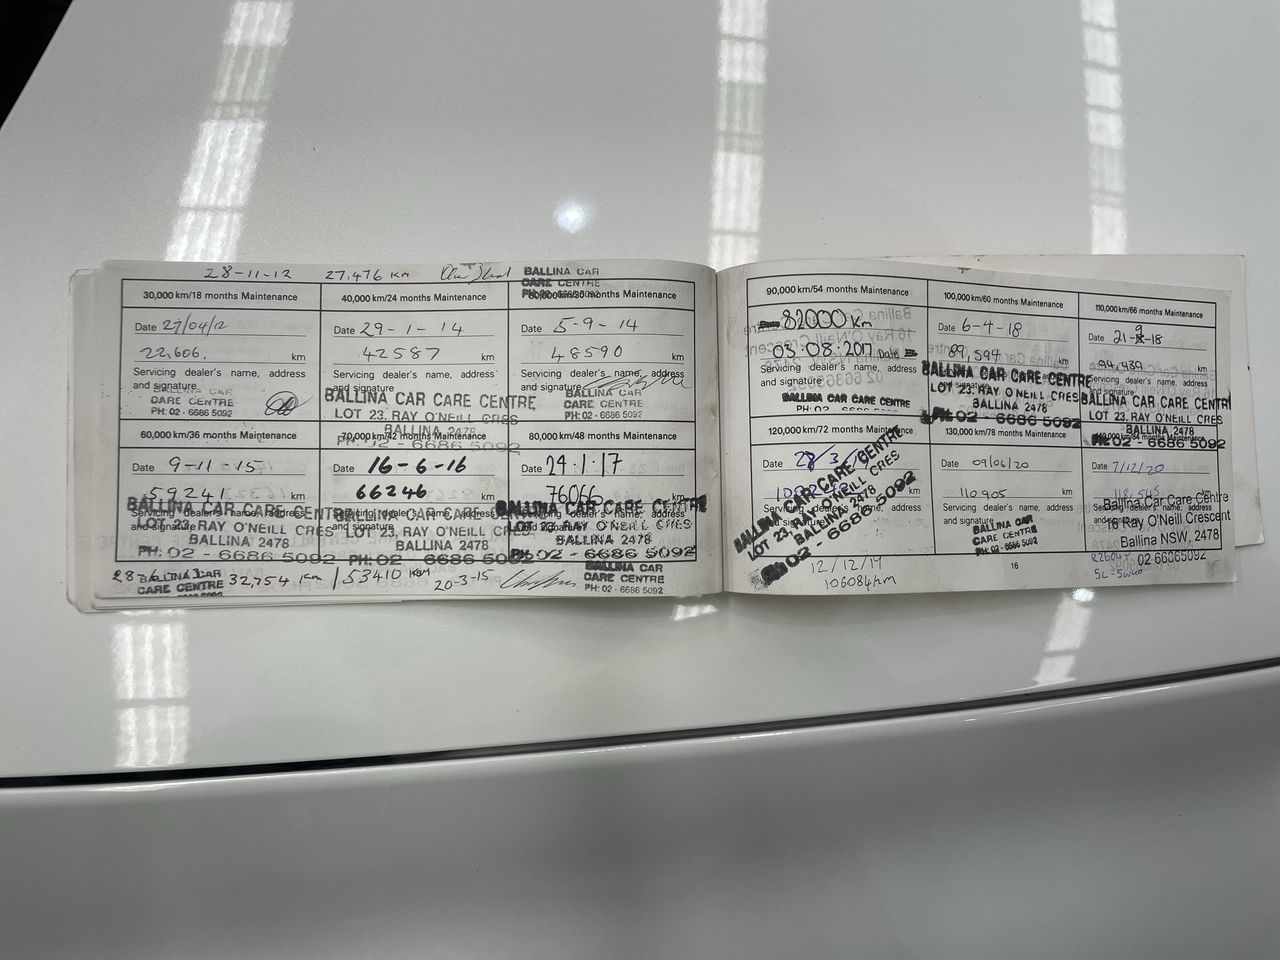 28-11-12 27,476 KM
BALLINA CAR
CARE CENTRE
PH: 02 - 6686 5092
30,000 km/18 months Maintenance
Date 27/04/12
22,606. km
Servicing dealer's name, address
and signature
BALLINA CAR
CARE CENTRE
PH: 02 - 6686 5092
40,000 km/24 months Maintenance
Date 29-1-14
42587 km
Servicing dealer's name, address
and signature
BALLINA CAR CARE CENTRE
LOT 23. RAY O'NEILL CRES
BALLINA 2478
PH: 02 - 6686 5092
Date 5-9-14
48590 km
Servicing dealer's name, address
and signature
BALLINA CAR
CARE CENTRE
PH: 02 - 6686 5092
60,000 km/36 months Maintenance
Date 9-11-15
59241 km
BALLINA CAR CARE CENTRE
LOT 23. RAY O'NEILL CRES
BALLINA 2478
PH: 02 - 6686 5092
70,000 km/42 months Maintenance
Date 16-6-16
66246 km
Servicing dealer's name, address
and signature
BALLINA CAR CARE
LOT 23. RAY O'NEILL CRES
BALLINA 2478
PH: 02 - 6686 5092
80,000 km/48 months Maintenance
Date 24.1.17
76066 km
BALLINA CAR CARE CENTRE
LOT 23. RAY O'NEILL CRES
BALLINA 2478
PH: 02 - 6686 5092
BALLINA CAR
CARE CENTRE
32,754 Km
53410 KM
20-3-15
BALLINA CAR
CARE CENTRE
PH: 02 - 6686 5092
90,000 km/54 months Maintenance
82000 Km
03.08.2017 Date
Servicing dealer's name, address
and signature
BALLINA CAR CARE CENTRE
PH: 02
100,000 km/60 months Maintenance
Date 6-4-18
89,594 km
BALLINA CAR CARE CENTRE
LOT 23. RAY O'NEILL CRES
BALLINA 2478
PH: 02 - 6686 5092
110,000 km/66 months Maintenance
Date 21-9-18
94,439 km
Servicing dealer's name, address
and signature
BALLINA CAR CARE CENTRE
LOT 23. RAY O'NEILL CRES
BALLINA 2478
PH: 02 - 6686 5092
120,000 km/72 months Maintenance
Date
BALLINA CAR CARE CENTRE
LOT 23. RAY O'NEILL CRES
BALLINA 2478
PH: 02 - 6686 5092
12/12/19
106084km
130,000 km/78 months Maintenance
Date 09/06/20
110905 km
Servicing dealer's name, address
and signature
BALLINA CAR
CARE CENTRE
PH: 02 - 6686 5092
Date 7/12/20
km
Ballina Car Care Centre
16 Ray O'Neill Crescent
Ballina NSW, 2478
02 66865092
16